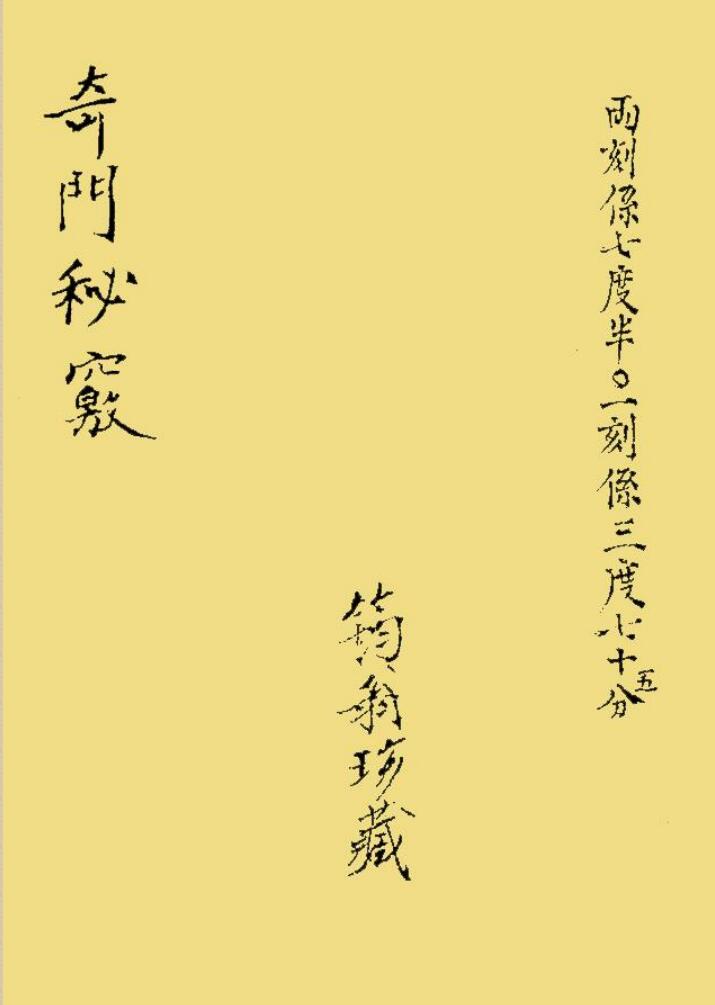 兩刻係七度半○一刻係三度七十五分
筠翁珍藏
奇門秘竅